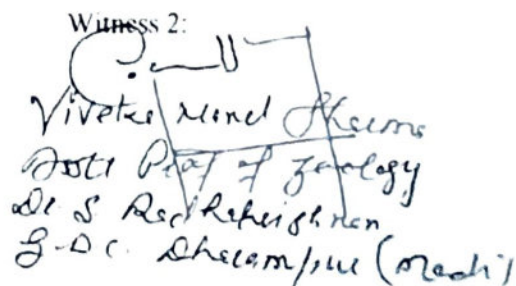 Witness 2:
Sharma
Asstt Prof of Zoology
Dr. S Radhakrishnan
G.D.C. Dharampur (Mandi)